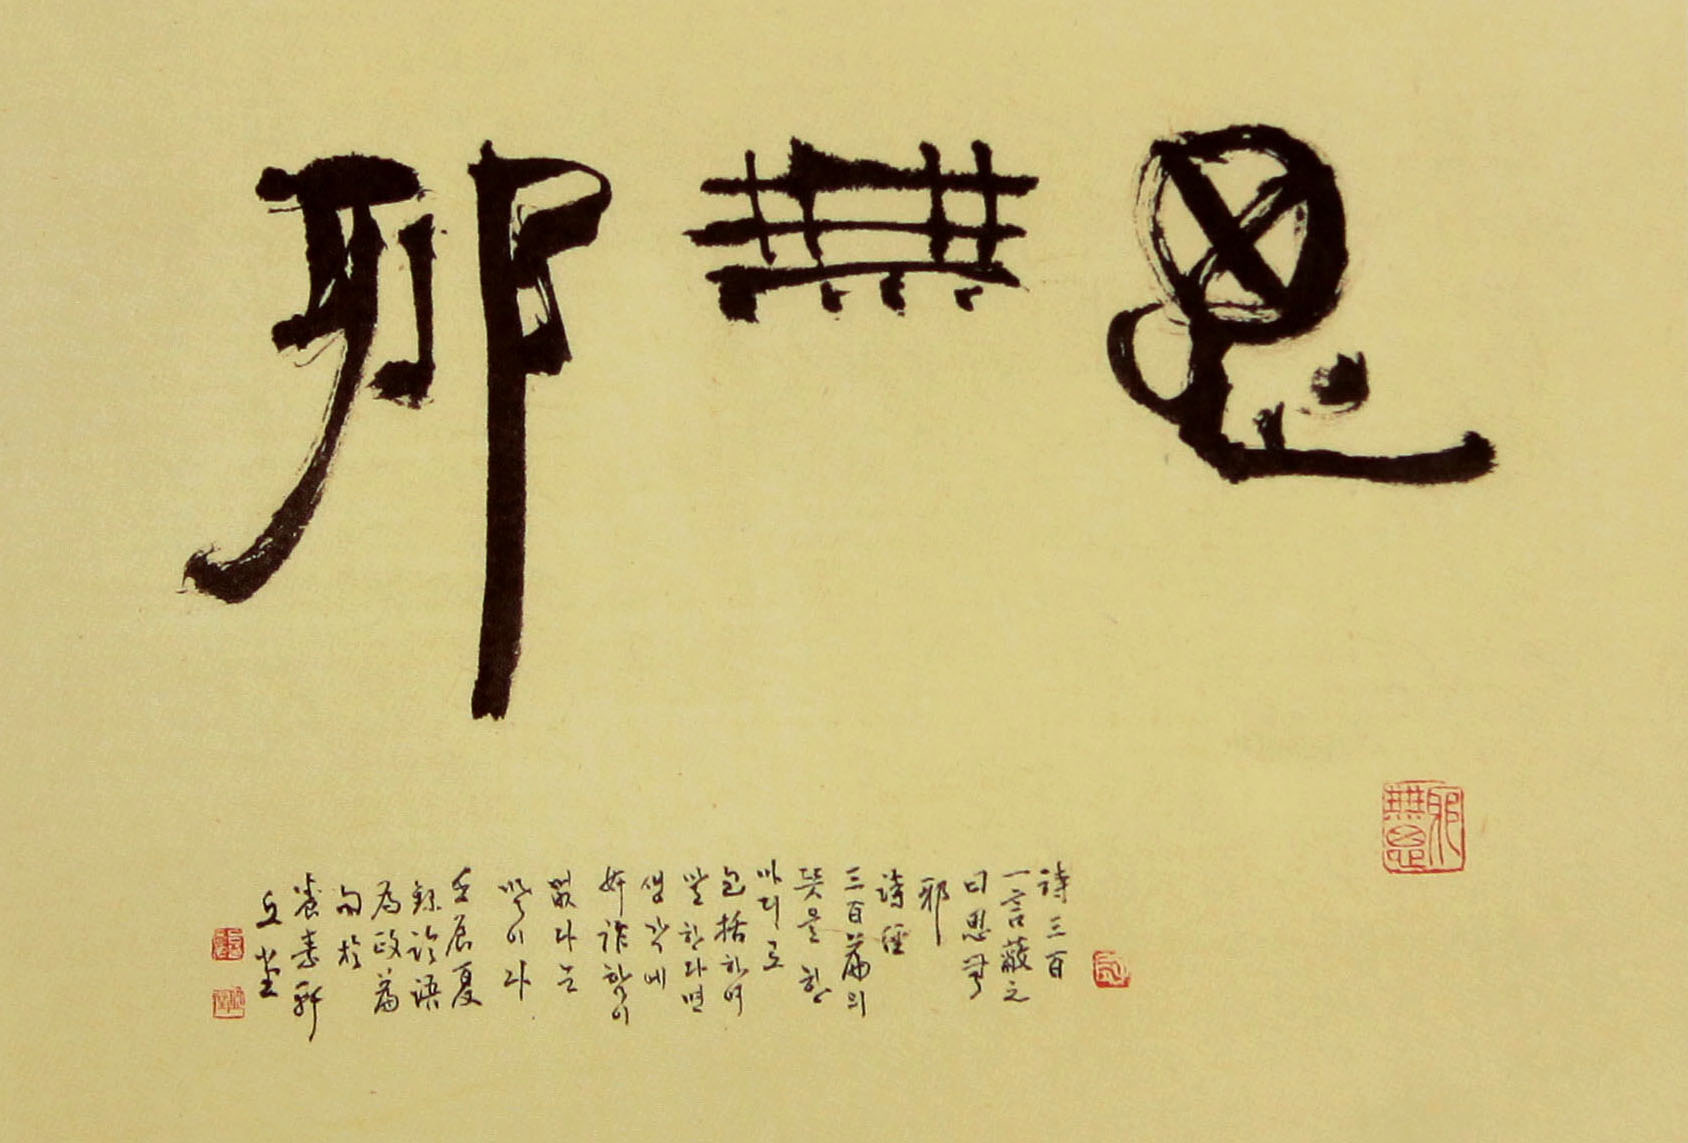 思無邪
詩三百
一言蔽之
曰思無
邪
詩經
三百篇의
뜻을 한
마디로
包括하여
말한다면
생각에
奸詐함이
없다는
말이다
壬辰夏
錄論語
為政篇
句於
養素軒
丘堂
思無邪